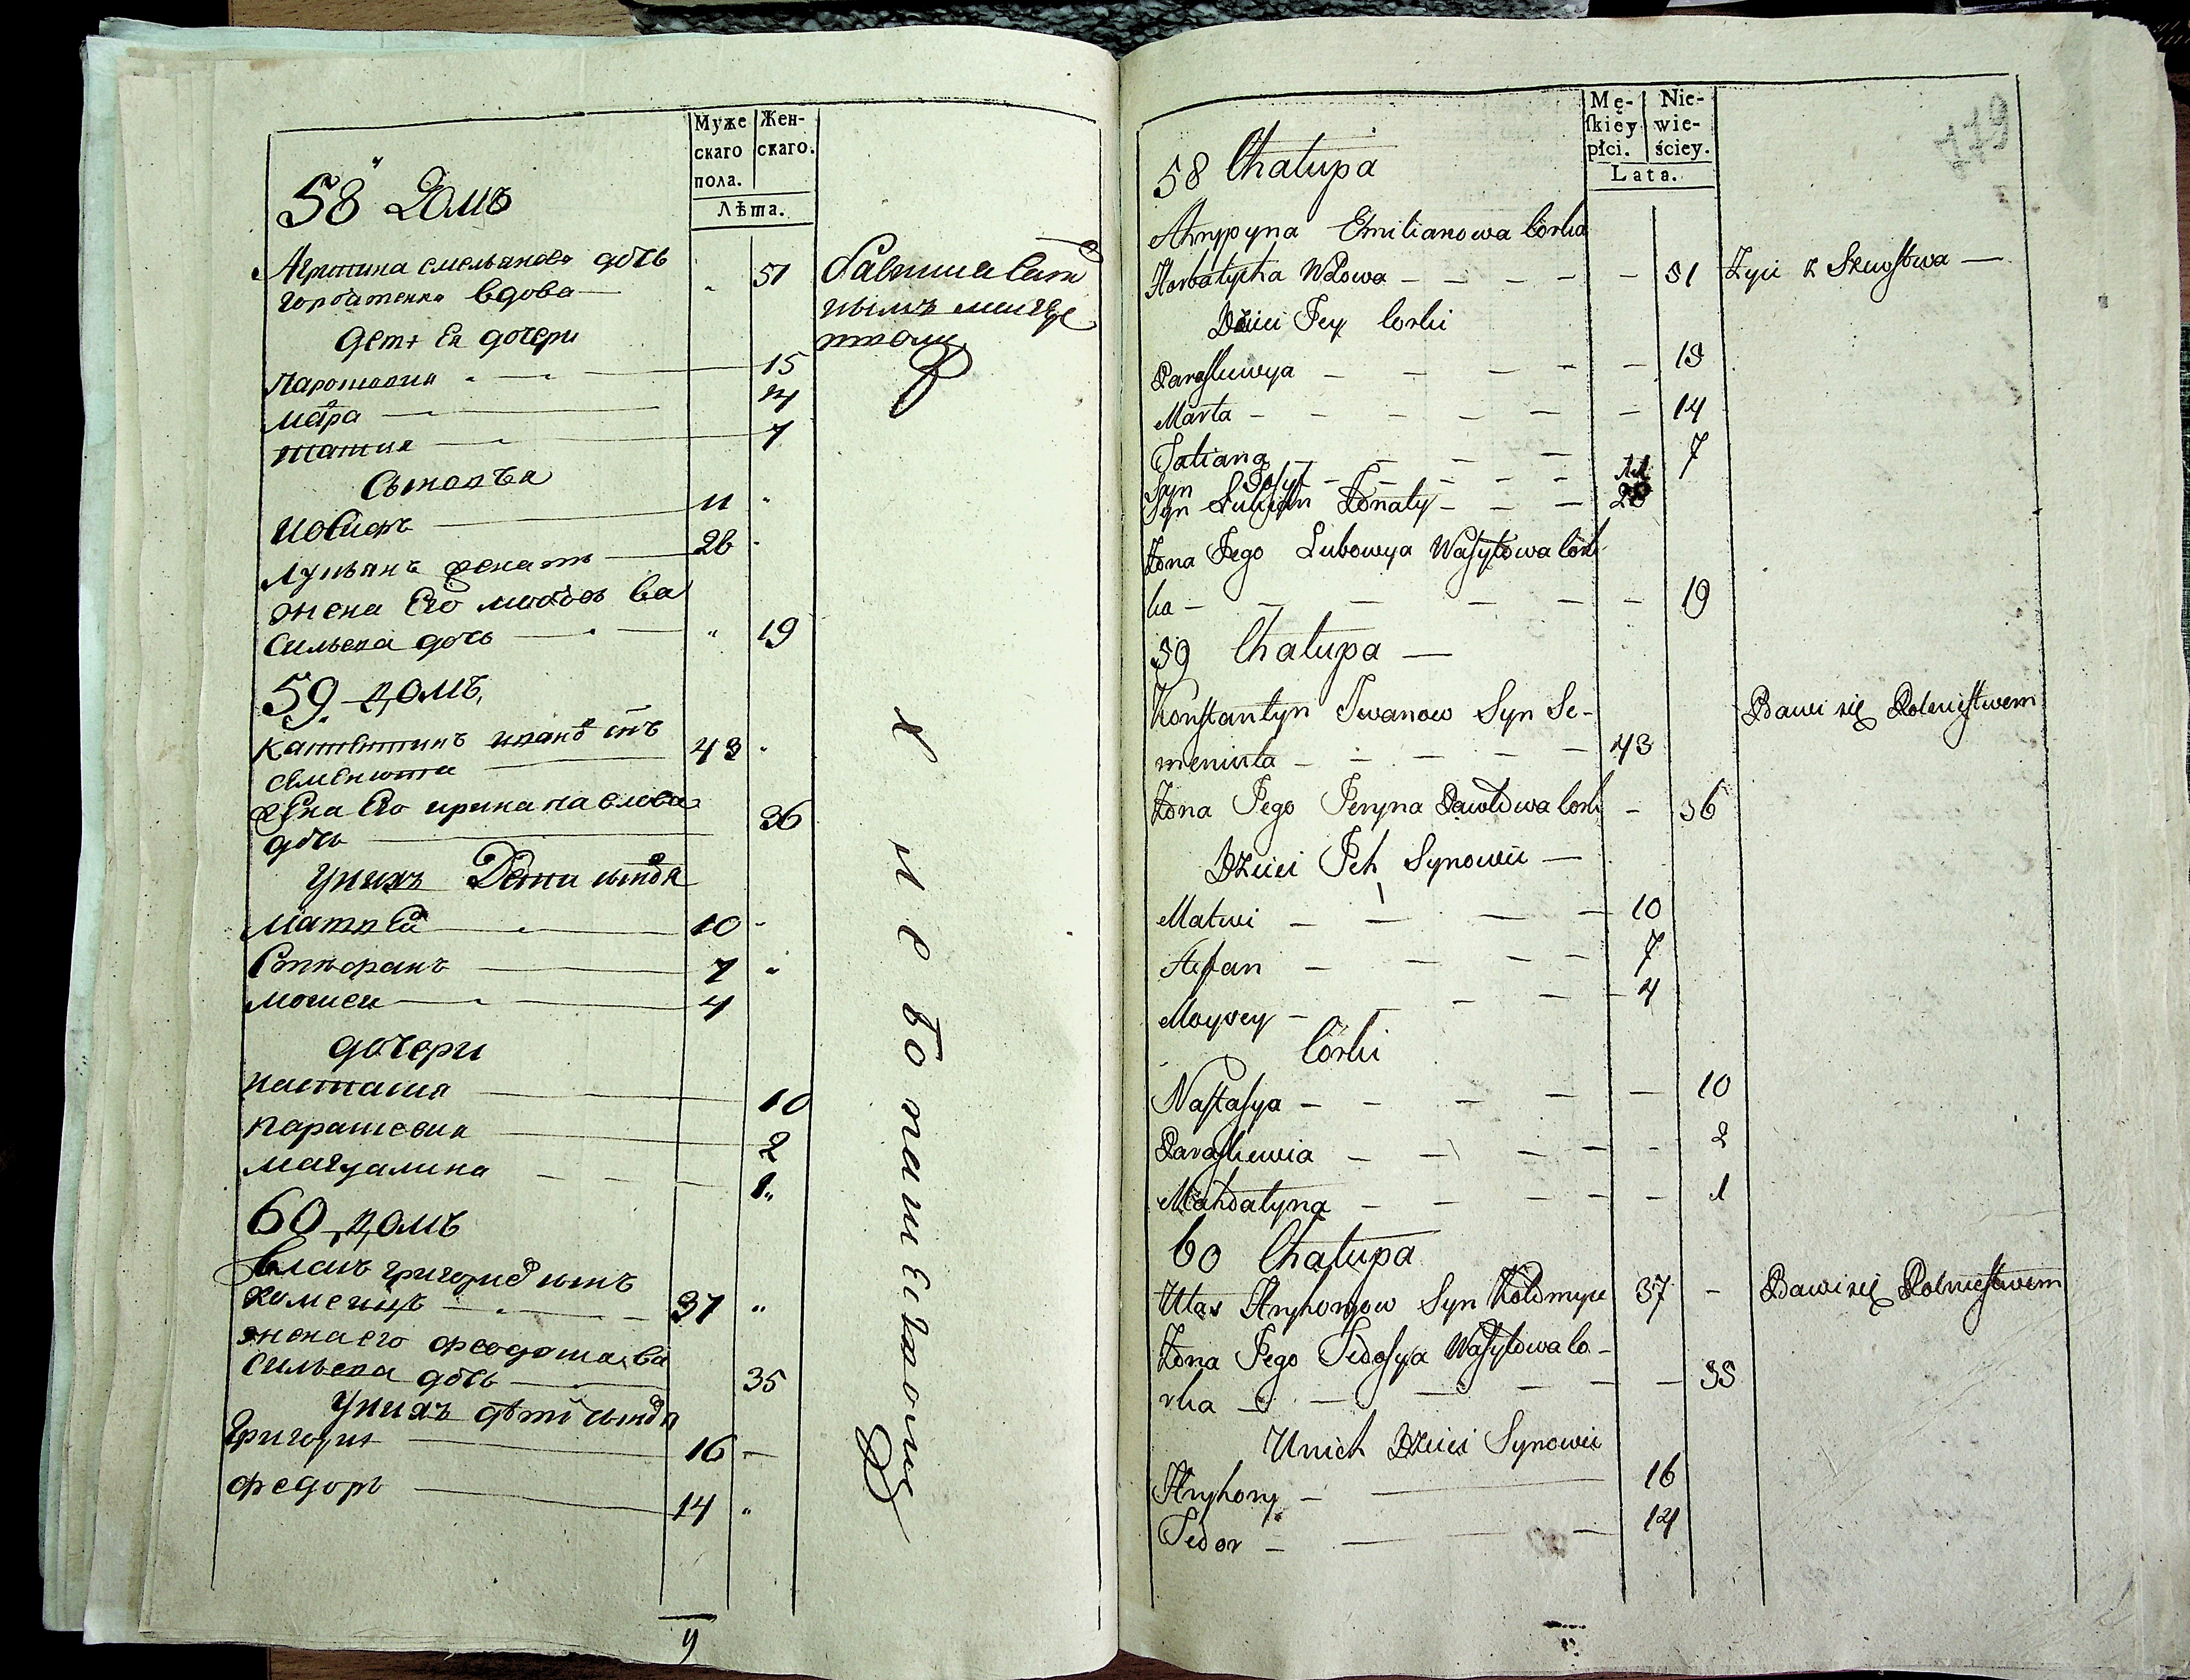 Муже
скаго
пола.
Жен-
скаго.
Лѣта.
58 Домъ
Агрипина емельянова дочь
горбатенко вдова 51
дети Ея дочери
Парасковия 15
Марѳа 14
татия 7
Сыновья
Иосифъ 11
Лукьянъ женатъ 26
жена Его любовь ва
сильева дочь 19
59 домъ
Костентинъ ивановъ сынъ
семенюта 43
жена Его ирина павлова
дочь 36
у нихъ Дети сыновя
Матвей 10
Стефанъ 7
мойсей 4
дочери
настасия 10
парасковия 2
магдалина 1
60 домъ
власъ григориевъ сынъ
37
жена его феодосия ва
сильева дочь 35
у нихъ дѣти сыновя
григорий 16
федоръ 14
хлебопашество
9
Mę-
skiey
płci.
Nie-
wie-
ściey.
Lata.
179
58 Chałupa
Ahrypyna Emilianowa Corka
Horbatycha Wdowa 51 Żyie z
Dzieci Jey Corki
Paraskiewya 15
Marta 14
Tatiana 7
Syn Josyf 11
Syn Łukijan Żonaty 26
Żona Jego Lubowya Wasylowa Cor
ka 19
59 Chałupa
Konstantyn Iwanow Syn Se-
meniuta 43 Bawi się Rolnictwem
Żona Jego Jeryna Pawłowa Cork 36
Dzieci Ich Synowie
Matwi 10
Stefan 7
Moysey 4
Corki
Nastasya 10
Paraskiewia 2
Mahdalyna 1
60 Chałupa
Ułas Hryhoryow Syn 37 Bawi się Rolnictwem
Żona Jego Fedosya Wasylowa Co-
rka 35
U nich Dzieci Synowie
Hryhory 16
Fedor 14